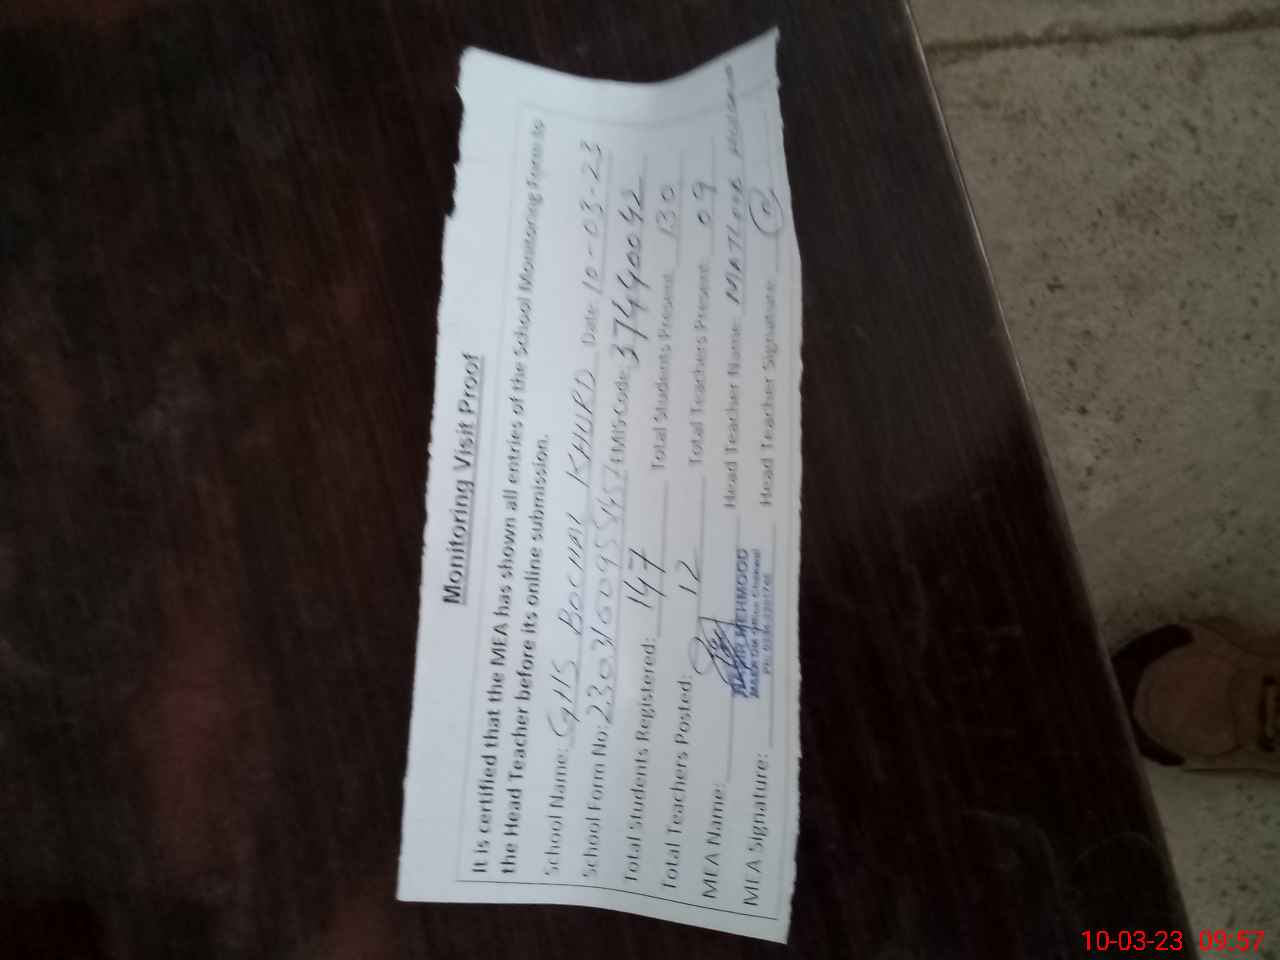 Monitoring Visit Proof
It is certified that the MEA has shown all entries of the School Monitoring Form to
the Head Teacher before its online submission.
School Name: GHS BOCHAL KHURD Date: 10-03-23
School Form No: EMIS Code: 37440042
Total Students Registered: 147 Total Students Present: 130
Total Teachers Posted: 12 Total Teachers Present: 09
MEA Name: MEHMOOD Head Teacher Name: MATLOOB
MEA Signature: Head Teacher Signature:
10-03-23 09:57